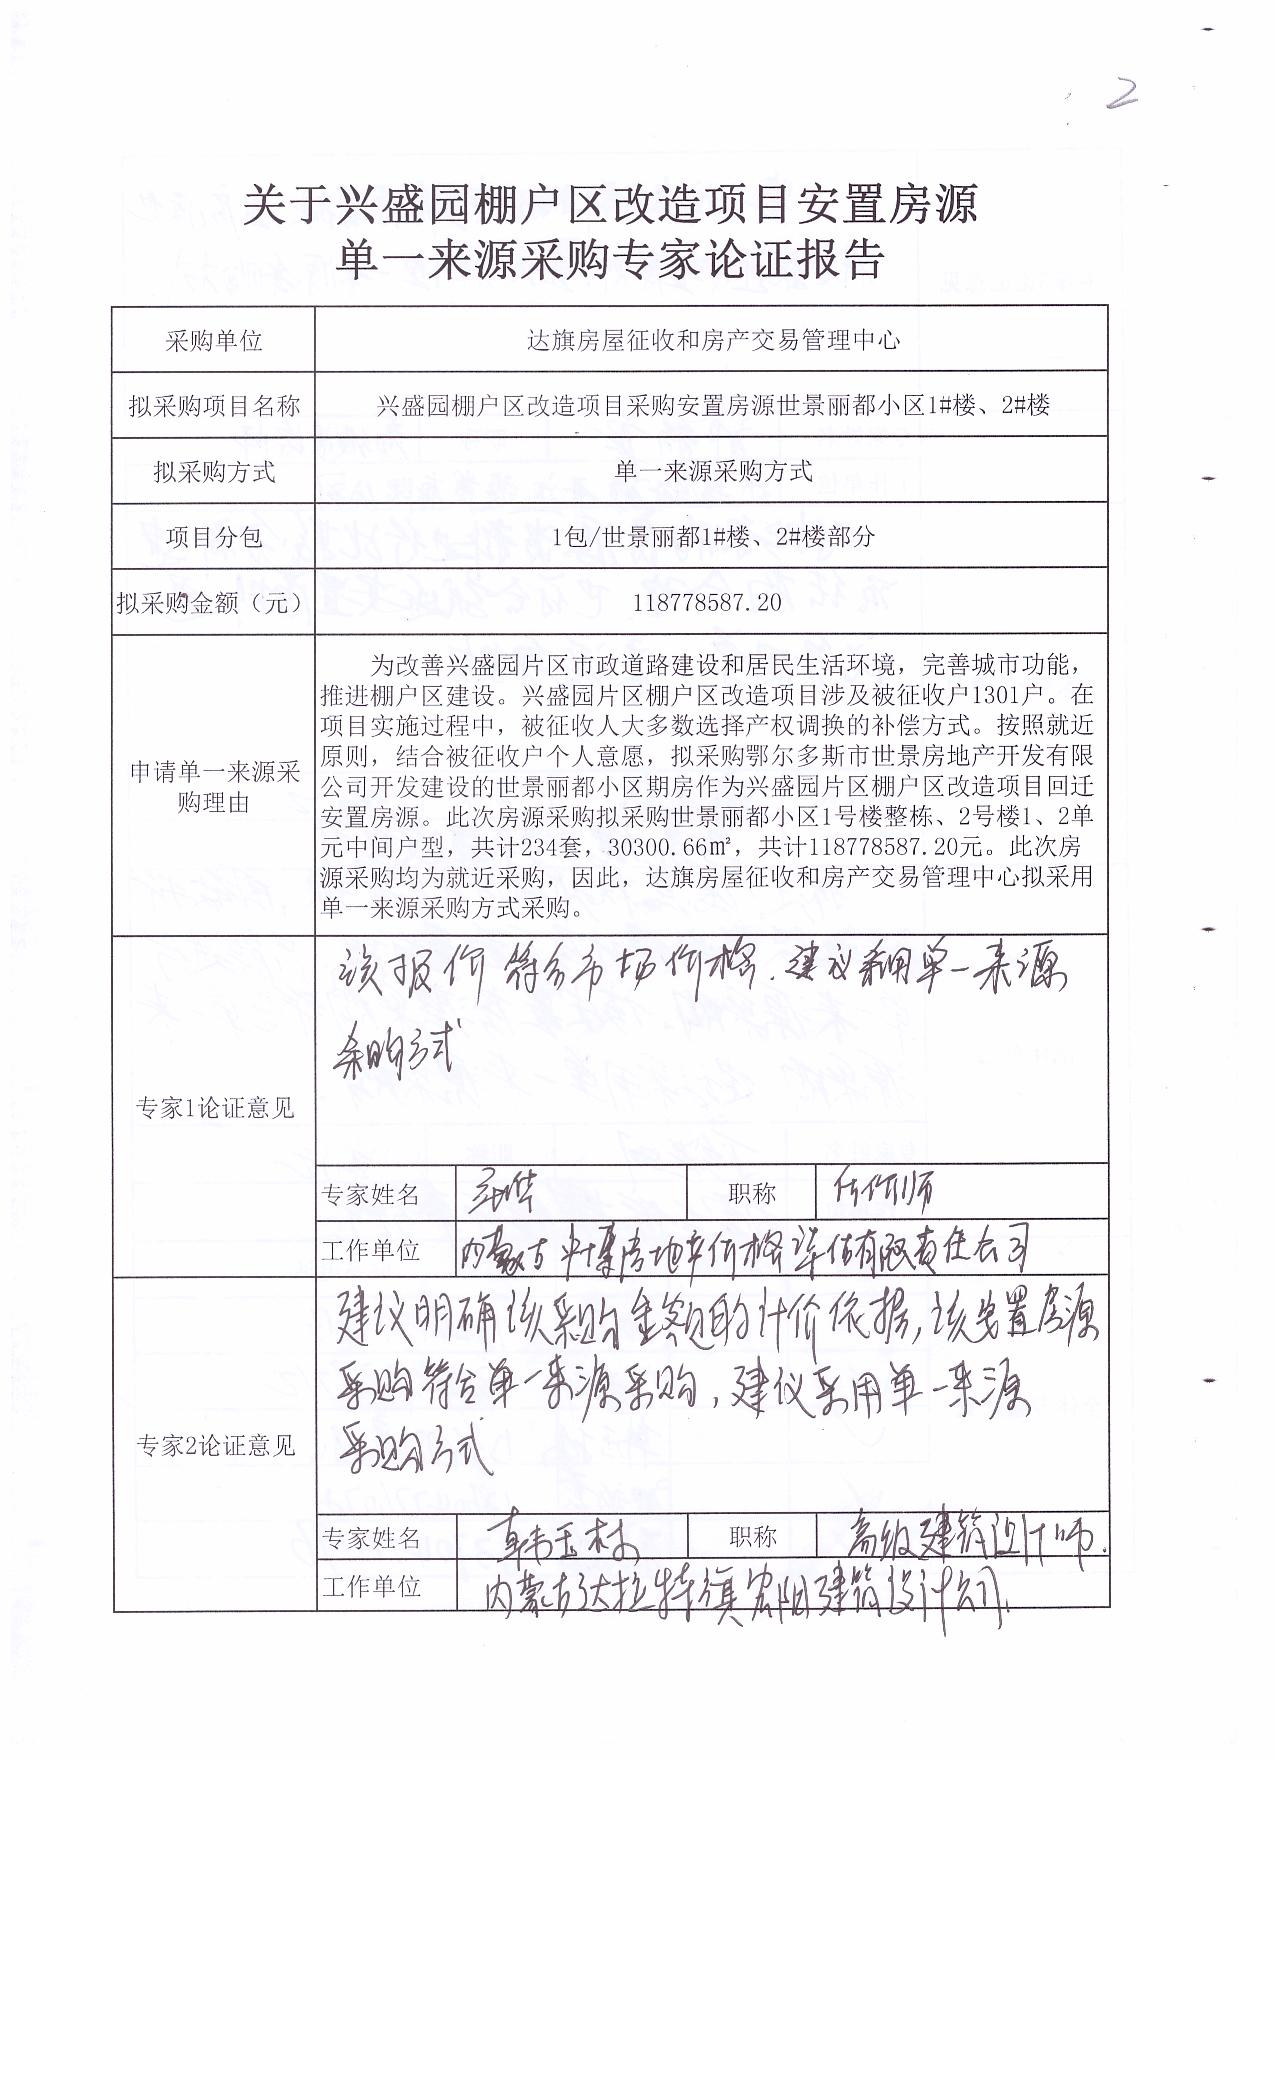 2
关于兴盛园棚户区改造项目安置房源
单一来源采购专家论证报告
采购单位
达旗房屋征收和房产交易管理中心
拟采购项目名称
兴盛园棚户区改造项目采购安置房源世景丽都小区1#楼、2#楼
拟采购方式
单一来源采购方式
项目分包
1包/世景丽都1#楼、2#楼部分
拟采购金额（元）
118778587.20
申请单一来源采
购理由
为改善兴盛园片区市政道路建设和居民生活环境，完善城市功能，
推进棚户区建设。兴盛园片区棚户区改造项目涉及被征收户1301户。在
项目实施过程中，被征收人大多数选择产权调换的补偿方式。按照就近
原则，结合被征收户个人意愿，拟采购鄂尔多斯市世景房地产开发有限
公司开发建设的世景丽都小区期房作为兴盛园片区棚户区改造项目回迁
安置房源。此次房源采购拟采购世景丽都小区1号楼整栋、2号楼1、2单
元中间户型，共计234套，30300.66㎡，共计118778587.20元。此次房
源采购均为就近采购，因此，达旗房屋征收和房产交易管理中心拟采用
单一来源采购方式采购。
专家1论证意见
该报价符合市场价格.建议采用单一来源
采购方式
专家姓名
职称
估价师
工作单位
内蒙古 房地产价格评估有限责任公司
专家2论证意见
建议明确该采购金额的计价依据,该安置房源
采购符合单一来源采购,建议采用单一来源
采购方式
专家姓名
韩玉树
职称
高级建筑设计师.
工作单位
内蒙古达拉特旗 建筑设计公司.